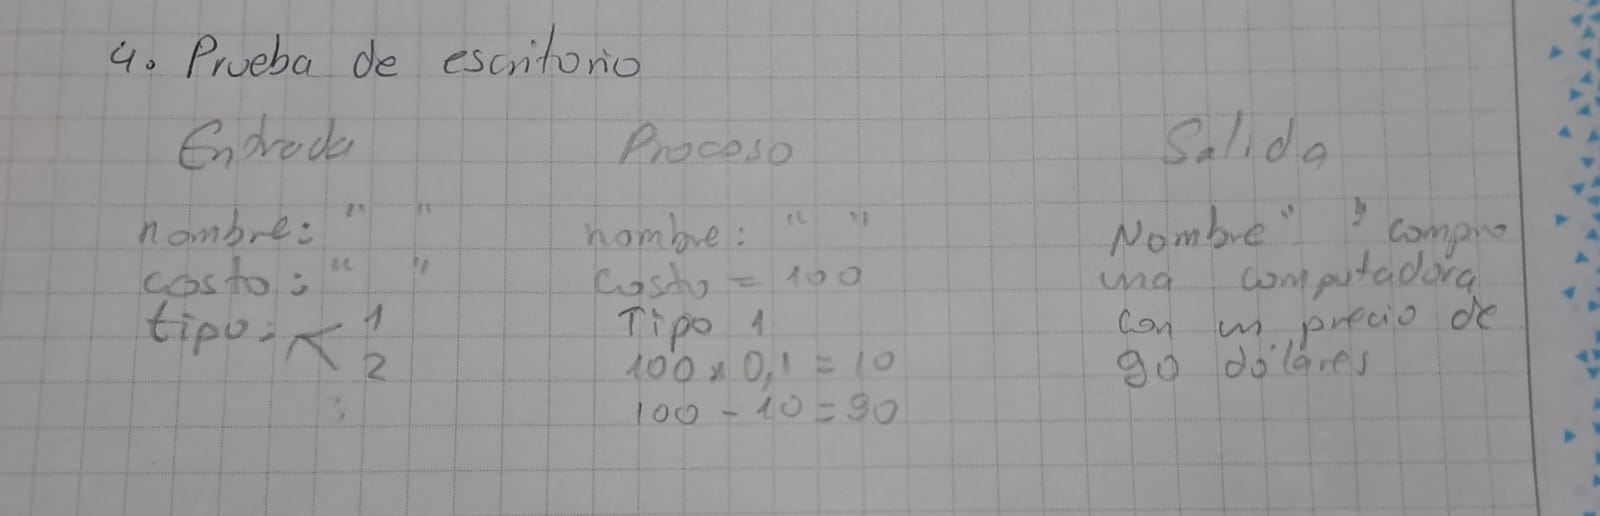 4. Prueba de escritorio
Entrada
nombre: " "
costo: " "
tipo: < 1
2
Proceso
nombre: " "
Costo = 100
Tipo 1
100 x 0,1 = 10
100 - 10 = 90
Salida
Nombre " " compro
una computadora
con un precio de
90 dólares